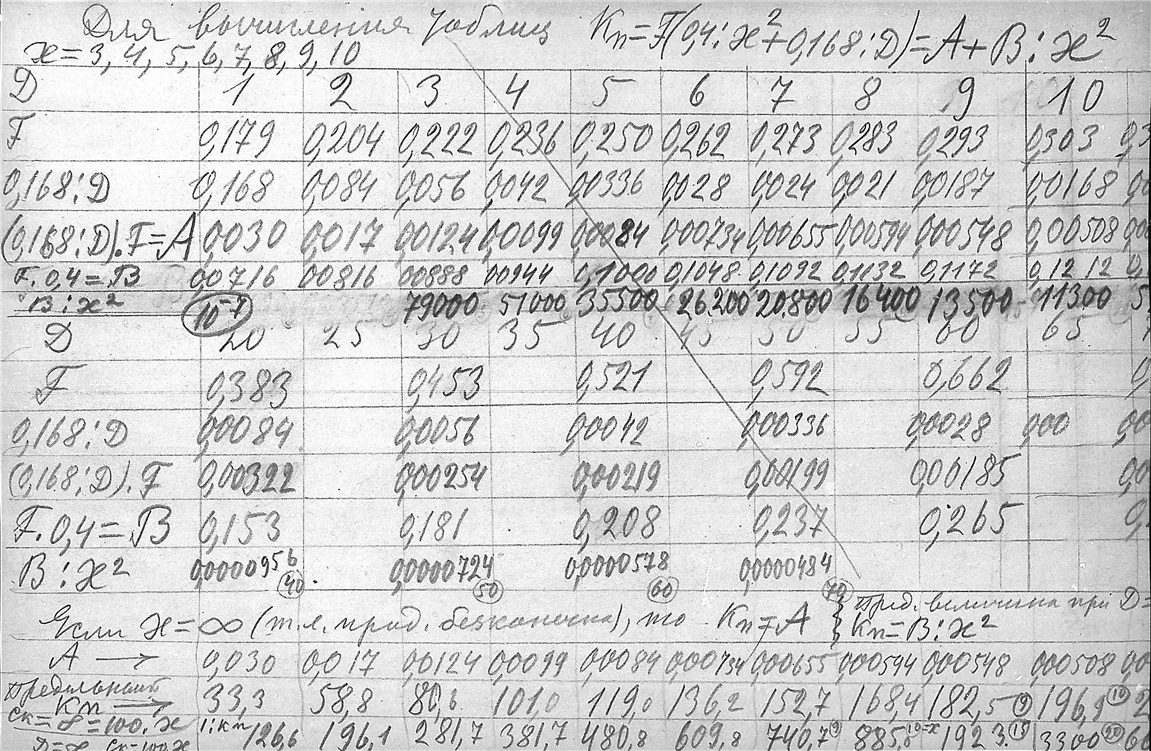 Для вычисления таблиц Kп=F(0,4:x²+0,168:D)=A+B:x²
x=3, 4, 5, 6, 7, 8, 9, 10
D 1 2 3 4 5 6 7 8 9 10
F 0,179 0,204 0,222 0,236 0,250 0,262 0,273 0,283 0,293 0,303 0,3
0,168:D 0,168 0,084 0,056 0,042 0,0336 0,028 0,024 0,021 0,0187 0,0168
(0,168:D).F=A 0,030 0,017 0,0124 0,0099 0,0084 0,00734 0,00655 0,00594 0,00548 0,00508
F.0,4=B 0,0716 0,0816 0,0888 0,0944 0,1000 0,1048 0,1092 0,1132 0,1172 0,1212
B:x² 10⁻⁷ 79000 51000 35500 26.200 20.800 16400 13500 11300 5
D 20 25 30 35 40 45 50 55 60 65
F 0,383 0,453 0,521 0,592 0,662
0,168:D 0,0084 0,0056 0,0042 0,00336 0,0028 0,00
(0,168:D).F 0,00322 0,00254 0,00219 0,00199 0,00185
F.0,4=B 0,153 0,181 0,208 0,237 0,265
B:x² 0,0000956 (40) 0,0000724 (50) 0,0000578 (60) 0,0000484 (70)
Если x=∞ (т.е. прод. бесконечна), то Kп=A } Пред. величина при D=
Kп=B:x²
A → 0,030 0,017 0,0124 0,0099 0,0084 0,00734 0,00655 0,00594 0,00548 0,00508
Предельный
Kп → 33,3 58,8 80,6 101,0 119,0 136,2 152,7 168,4 182,5 (9) 196,9 (10) 2
ск=∞=100.x 1:Kп 126,6 196,1 281,7 381,7 480,8 609,8 740,7 885,8 1923 3300
D=x ск=100x